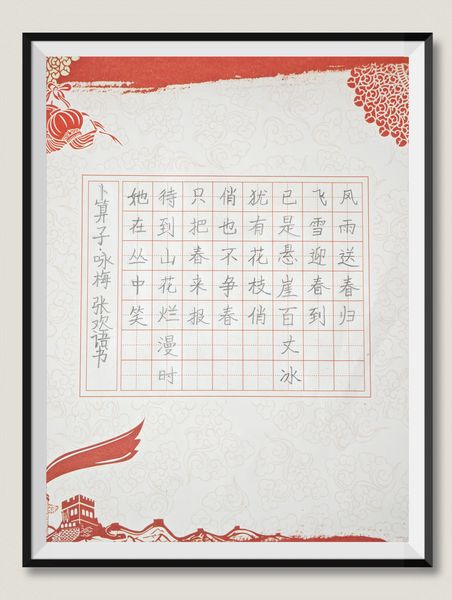 风雨送春归
飞雪迎春到
已是悬崖百丈冰
犹有花枝俏
俏也不争春
只把春来报
待到山花烂漫时
她在丛中笑
卜算子·咏梅 张欢语书